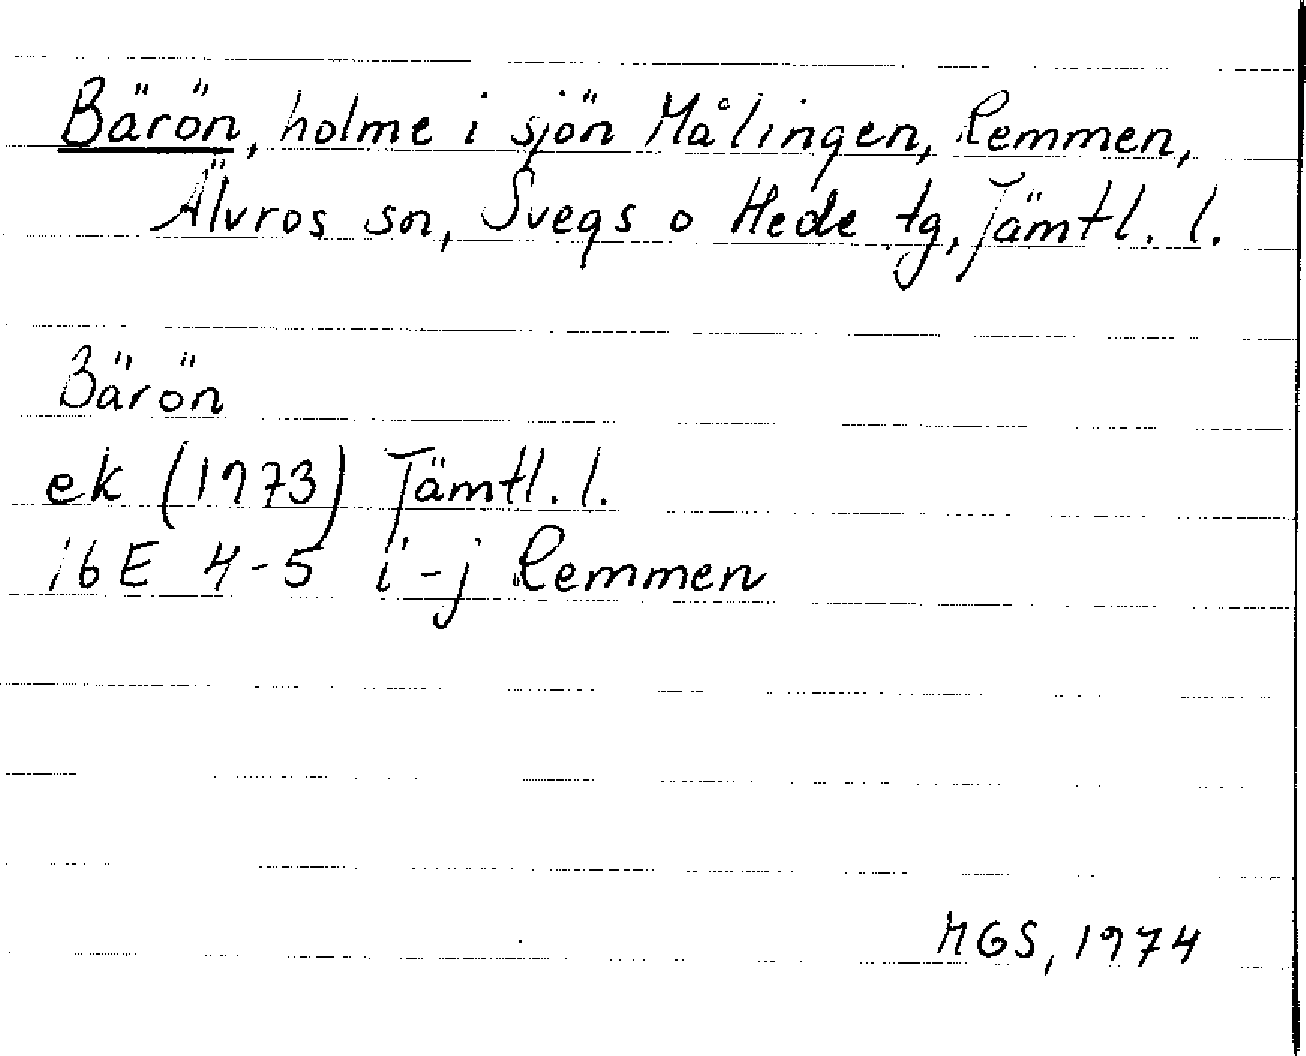 Bärön, holme i sjön Målingen, Remmen,
Älvros sn, Svegs o Hede tg, Jämtl. l.
Bärön
ek (1973) Jämtl. l.
16E 4-5 i-j Remmen
MGS, 1974